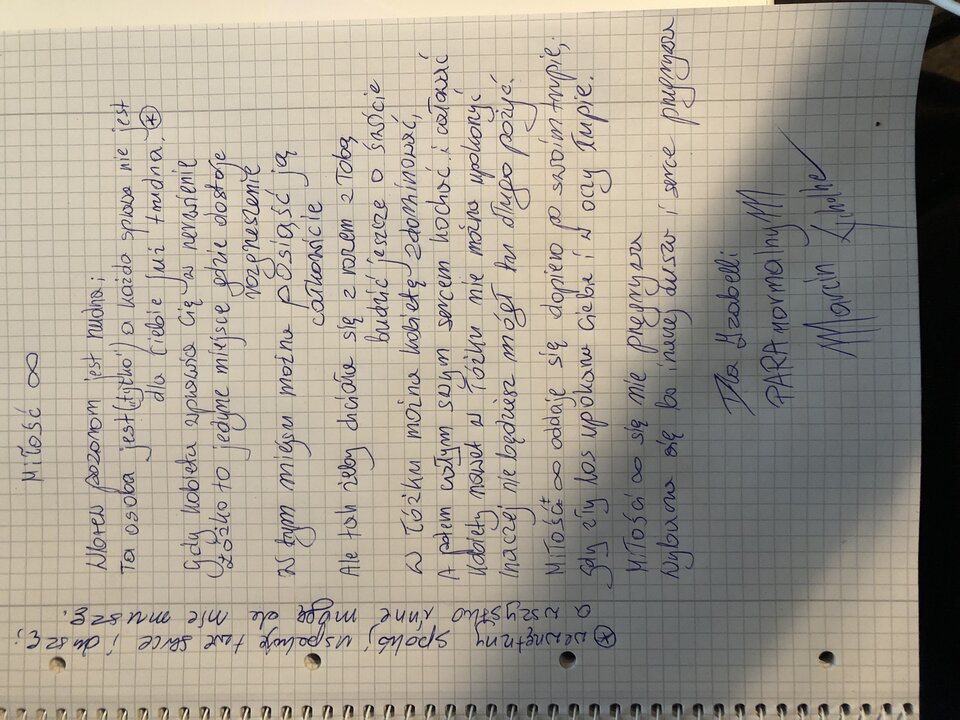 Miłość ∞
Wbrew pozorom jest nudna;
Ta osoba jest (tylko) a każda sprawa nie jest
dla ciebie już trudna. *
Gdy kobieta wprawia Cię w
Łóżko to jedyne miejsce gdzie dostaje
rozgrzeszenie
W tym miejscu można posiąść ją
całkowicie
Ale tak żeby chciała się z rana z Tobą
budzić jeszcze o świcie
W łóżku można kobietę zdominować,
A potem całym swym sercem kochać i całować
Kobiety nawet w łóżku nie można upokorzyć
Inaczej nie będziesz mógł tu długo pożyć.
Miłość ∞ oddaje się dopiero po swoim trupie,
Gdy zły los upokarza Ciebie i w oczy łupie.
Miłości ∞ się nie
się bo i serce
Dla Izabelli
PARAnormalny
Marcin
* wewnętrzny spokój wspaluje twe serce i duszę;
a wszystko inne mogę ale nie muszę.